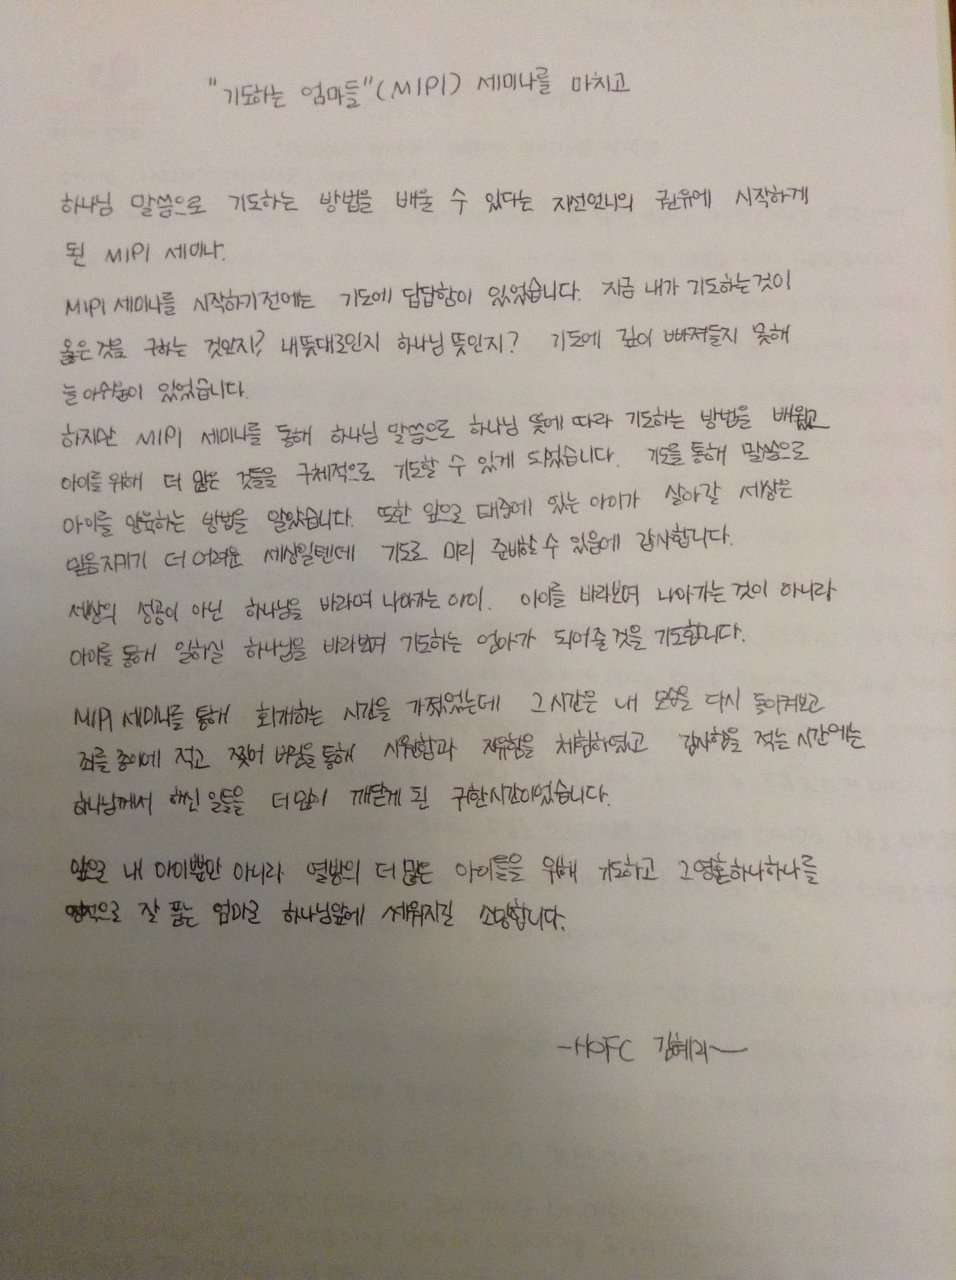 "기도하는 엄마들" (MIPI) 세미나를 마치고
하나님 말씀으로 기도하는 방법을 배울 수 있다는 지선언니의 권유에 시작하게
된 MIPI 세미나.
MIPI 세미나를 시작하기전에는 기도에 답답함이 있었습니다. 지금 내가 기도하는것이
옳은것을 구하는 것인지? 내뜻대로인지 하나님 뜻인지? 기도에 깊이 빠져들지 못해
늘 아쉬움이 있었습니다.
하지만 MIPI 세미나를 통해 하나님 말씀으로 하나님 뜻에 따라 기도하는 방법을 배웠고
아이를 위해 더 많은 것들을 구체적으로 기도할 수 있게 되었습니다. 기도를 통해 말씀으로
아이를 양육하는 방법을 알았습니다. 또한 앞으로 태중에 있는 아이가 살아갈 세상은
믿음지키기 더 어려운 세상일텐데 기도로 미리 준비할 수 있음에 감사합니다.
세상의 성공이 아닌 하나님을 바라며 나아가는 아이. 아이를 바라보며 나아가는 것이 아니라
아이를 통해 일하실 하나님을 바라보며 기도하는 엄마가 되어줄 것을 기도합니다.
MIPI 세미나를 통해 회개하는 시간을 가졌었는데 그시간은 내 모습을 다시 돌이켜보고
죄를 종이에 적고 찢어 버림을 통해 시원함과 자유함을 체험하였고 감사함을 적는 시간에는
하나님께서 하신 일들을 더 많이 깨닫게 된 귀한시간이었습니다.
앞으로 내 아이뿐만 아니라 열방의 더 많은 아이들을 위해 기도하고 그영혼하나하나를
영적으로 잘 품는 엄마로 하나님앞에 세워지길 소망합니다.
-HOFC 김혜리-